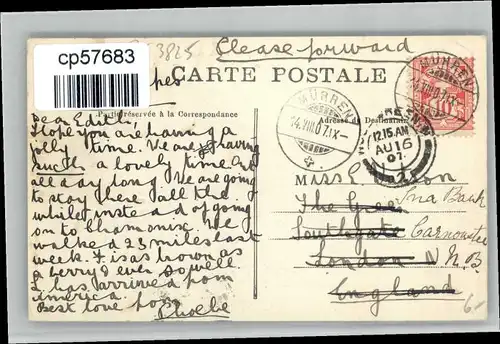 cp57683
3825
Please forward
CARTE POSTALE
Partie réservée à la Correspondance
Adresse du Destinataire
MÜRREN
14.VIII.07.IX-
MÜRREN
12.15.AM
AU 16
07
Dear Edie,
I hope you are having a
jolly time. We are having
such a lovely time out
all day long We are going
to stay here all the
while instead of going
on to Chamonix. We
walked 23 miles last
week. It is as brown as
a berry & ever so well.
has arrived from
America.
Best love from
Phoebe
MISS
The Ina Bank
Southgate Carnoustie
London N N.B.
England